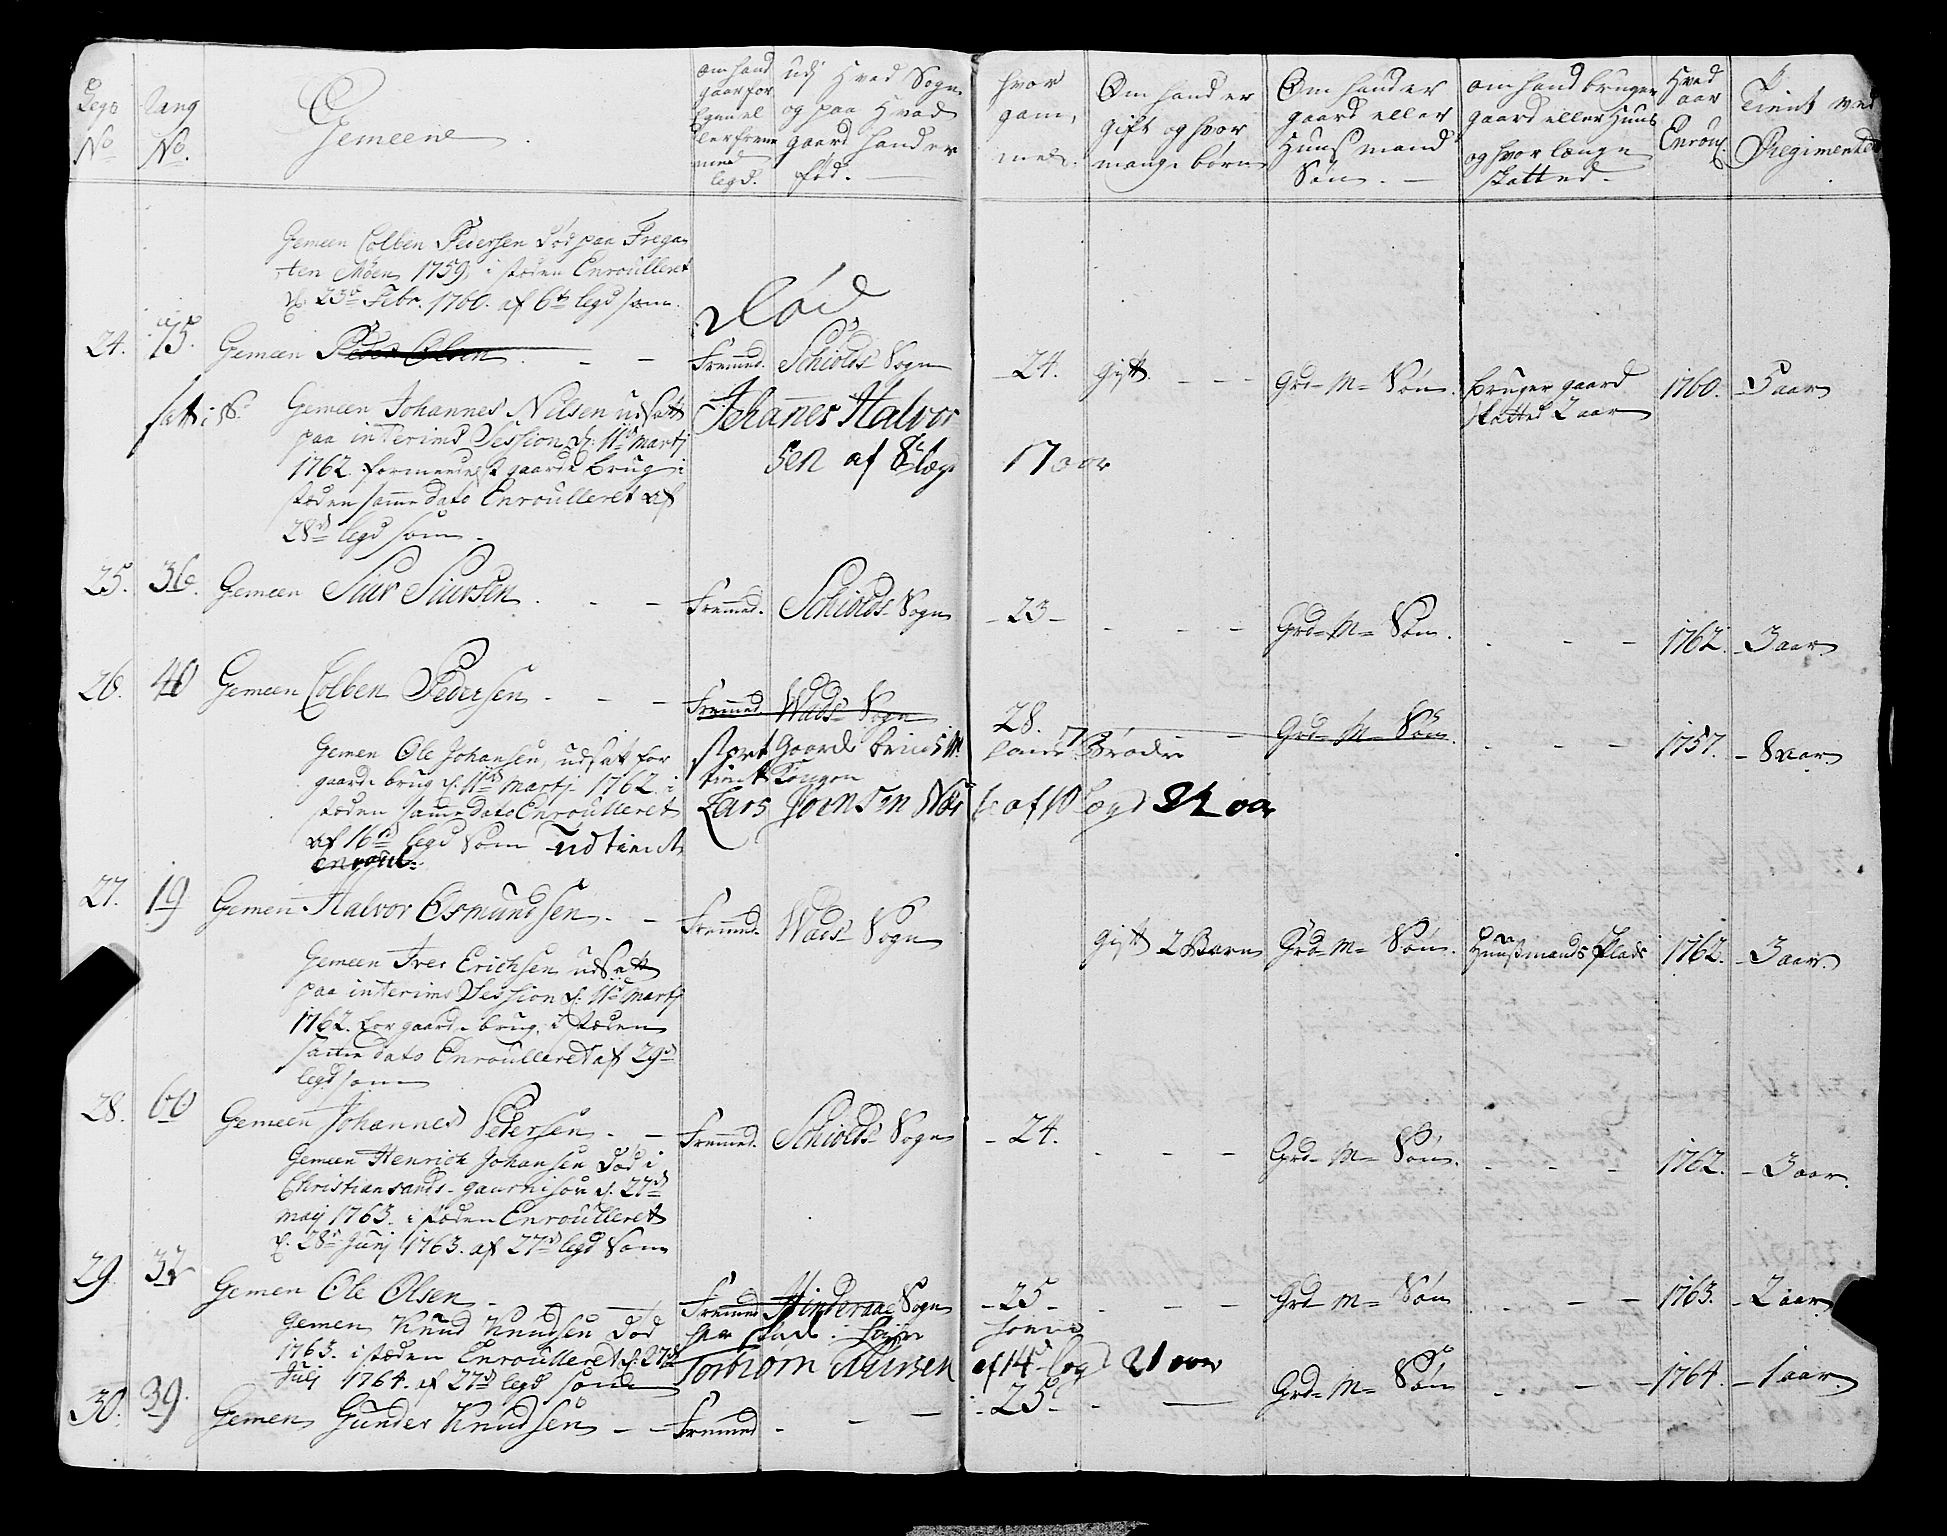 Legs No
Rang No.
Gemeene
om hand gaar for Egen el ler frem med legd.
udj Hvad Sogn og paa Hvad gaard hand er fød.
hvor gam, mel.
Om hand er gift og hvor mange børn
Om hand er gaard eller Huus mand Søn.
om hand bruger gaard eller Huus og hvor længe skatted.
Hvad aar Enroul.
Tient ved Regimentet
Gemeen Colben Pedersen Død paa Frega-
ten Møen 1759, i stæden Enroulleret
d. 23de Febr. 1760. af 6te legd som.
Død
24. 75. Gemeen Peder Olsen Fremmed. Schiolds Sogn 24. Gift. Grd- M- Søn. bruger gaard skatted 2 aar 1760. 5 aar
Gemeen Johannes Nilsen udsatt
paa interims Session d. 11te Martj
1762 formedelst gaards brug i
stæden samme dato Enroulleret af
28de legd som.
Johannes Halvor
sen af 8de læg 17 aar
25. 36. Gemeen Siur Siursen. Fremmed. Schiolds Sogn - 23 - Grd- M- Søn. 1762. - 3 aar
26. 40 Gemeen Colben Pedersen Fremmed. Wads Sogn 28. Grd- M- Søn. 1757. - 8 aar.
Gemen Ole Johansen, udsat for
gaards brug d. 11te Martj 1762. i
stæden samme dato Enroulleret
af 16de legd som udtient
Enroul.
stort Gaards brug
tient Kongen
Lars af 10 legd 21 aar
27. 19 Gemen Halvor Osmundsen. Fremmd. Wads Sogn Gift 2 Børn Grd- M- Søn. Huusmands Plads 1762. - 3 aar.
Gemeen Iver Erichsen udsatt
paa interims Session d. 11te Martj
1762. for gaards brug, i stæden
samme dato Enroulleret af 29de
legd som
28. 60 Gemeen Johannes Petersen. Fremmed. Schiolds Sogn - 24. Grd- M- Søn. 1762. - 3 aar.
Gemeen Henrich Johansen Død i
Christiansands gaarnison d. 27de
Maij 1763. i stæden Enroulleret
d. 28de Junj 1763. af 27de legd som
29. 32 Gemen Ole Olsen Fremmed Hinderaae Sogn - 25 - Grd- M- Søn 1763. - 2 aar
Gemen Knud Knudsen Død
1763. i stæden Enroulleret d. 27de
Julj 1764. af 27de legd som
Torbiørn Siursen af 14de legd 21 aar
30. 39. Gemen Gunder Knudsen Fremmed - 25 - Grd- M- Søn 1764. - 1 aar.